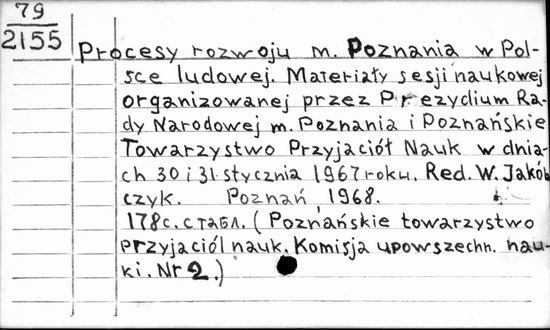 79
2155
Procesy rozwoju m. Poznania w Pol-
sce ludowej. Materiały sesji naukowej
organizowanej przez Prezydium Ra-
dy Narodowej m. Poznania i Poznańskie
Towarzystwo Przyjaciół Nauk w dnia-
ch 30 i 31 stycznia 1967 roku. Red. W. Jakób
czyk. Poznań, 1968.
178с. с табл. (Poznańskie towarzystwo
przyjaciół nauk. Komisja upowszechn. nau-
ki. Nr 2.)